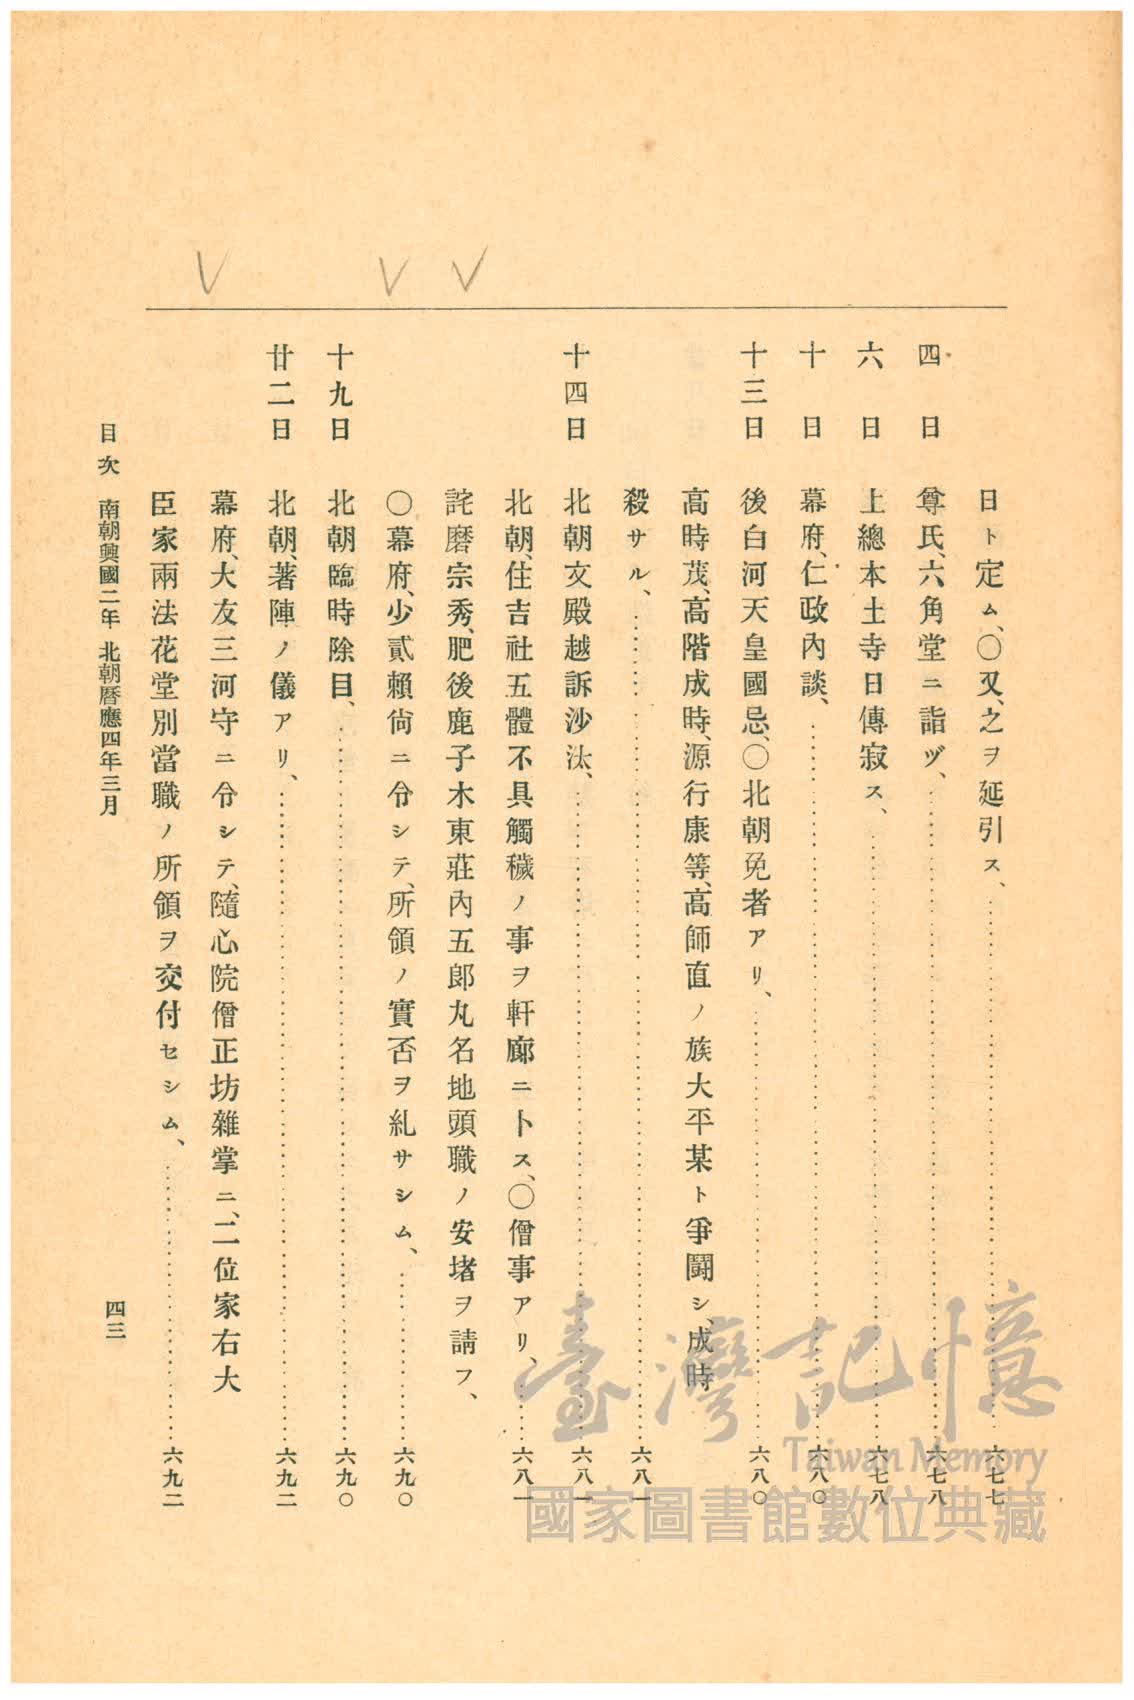 日ト定ム、〇又、之ヲ延引ス、…………六七七
四日 尊氏、六角堂ニ詣ヅ、…………六七八
六日 上總本土寺日傳寂ス、…………六七八
十日 幕府、仁政內談、…………六八〇
十三日 後白河天皇國忌、〇北朝免者アリ、…………六八〇
高時茂、高階成時、源行康等、高師直ノ族大平某ト爭鬪シ、成時
殺サル、…………六八一
十四日 北朝文殿越訴沙汰、…………六八一
北朝、住吉社五體不具觸穢ノ事ヲ軒廊ニトス、〇僧事アリ、…………六八一
詫磨宗秀、肥後鹿子木東莊內五郎丸名地頭職ノ安堵ヲ請フ、
〇幕府、少貳賴尙ニ令シテ、所領ノ實否ヲ糺サシム、…………六九〇
十九日 北朝臨時除目、…………六九〇
廿二日 北朝、著陣ノ儀アリ、…………六九二
幕府、大友三河守ニ令シテ、隨心院僧正坊雜掌ニ、二位家右大
臣家兩法花堂別當職ノ所領ヲ交付セシム、…………六九二
目次 南朝興國二年 北朝曆應四年三月 四三
臺灣記憶
Taiwan Memory
國家圖書館數位典藏